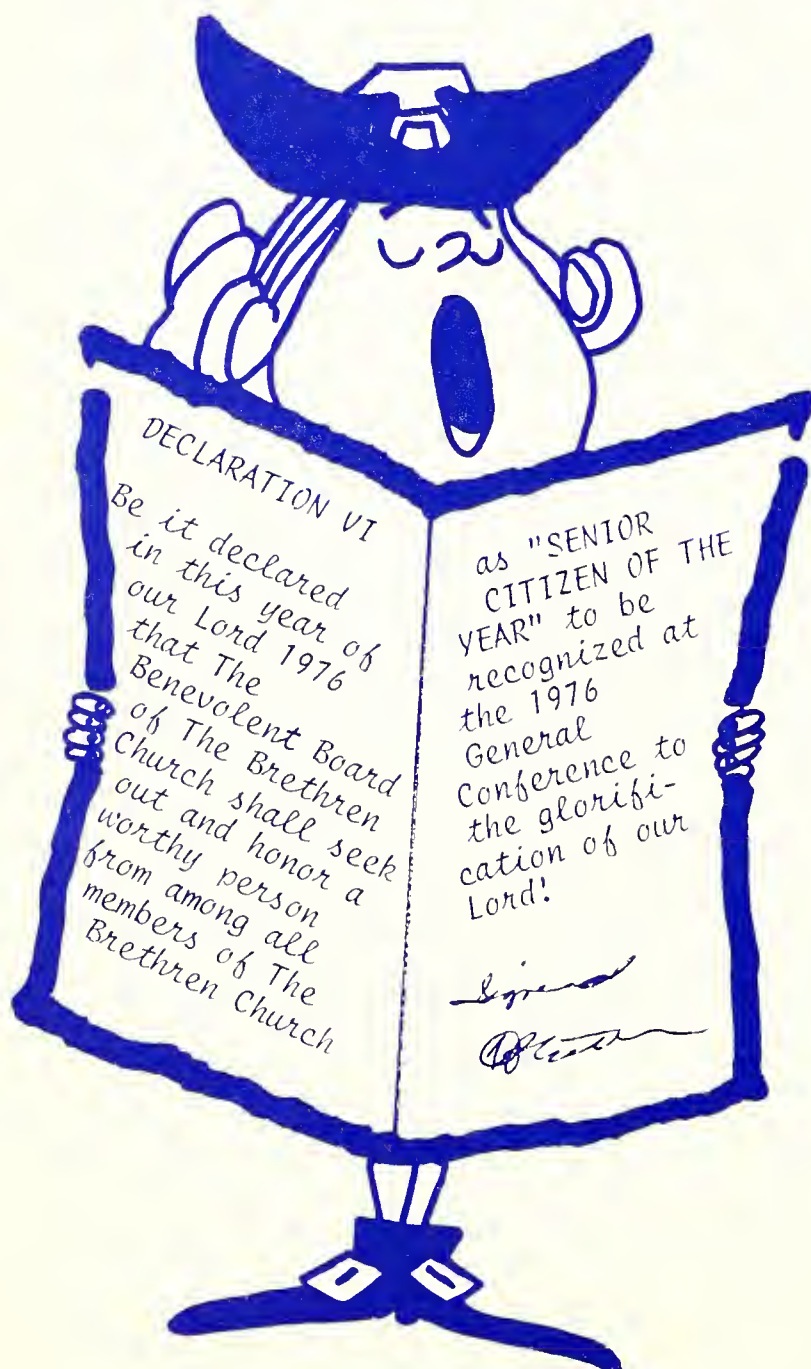 DECLARATION VI
Be it declared
in this year of
our Lord 1976
that The
Benevolent Board
of The Brethren
Church shall seek
out and honor a
worthy person
from among all
members of The
Brethren Church
as "SENIOR
CITIZEN OF THE
YEAR" to be
recognized at
the 1976
General
Conference to
the glorifi-
cation of our
Lord!